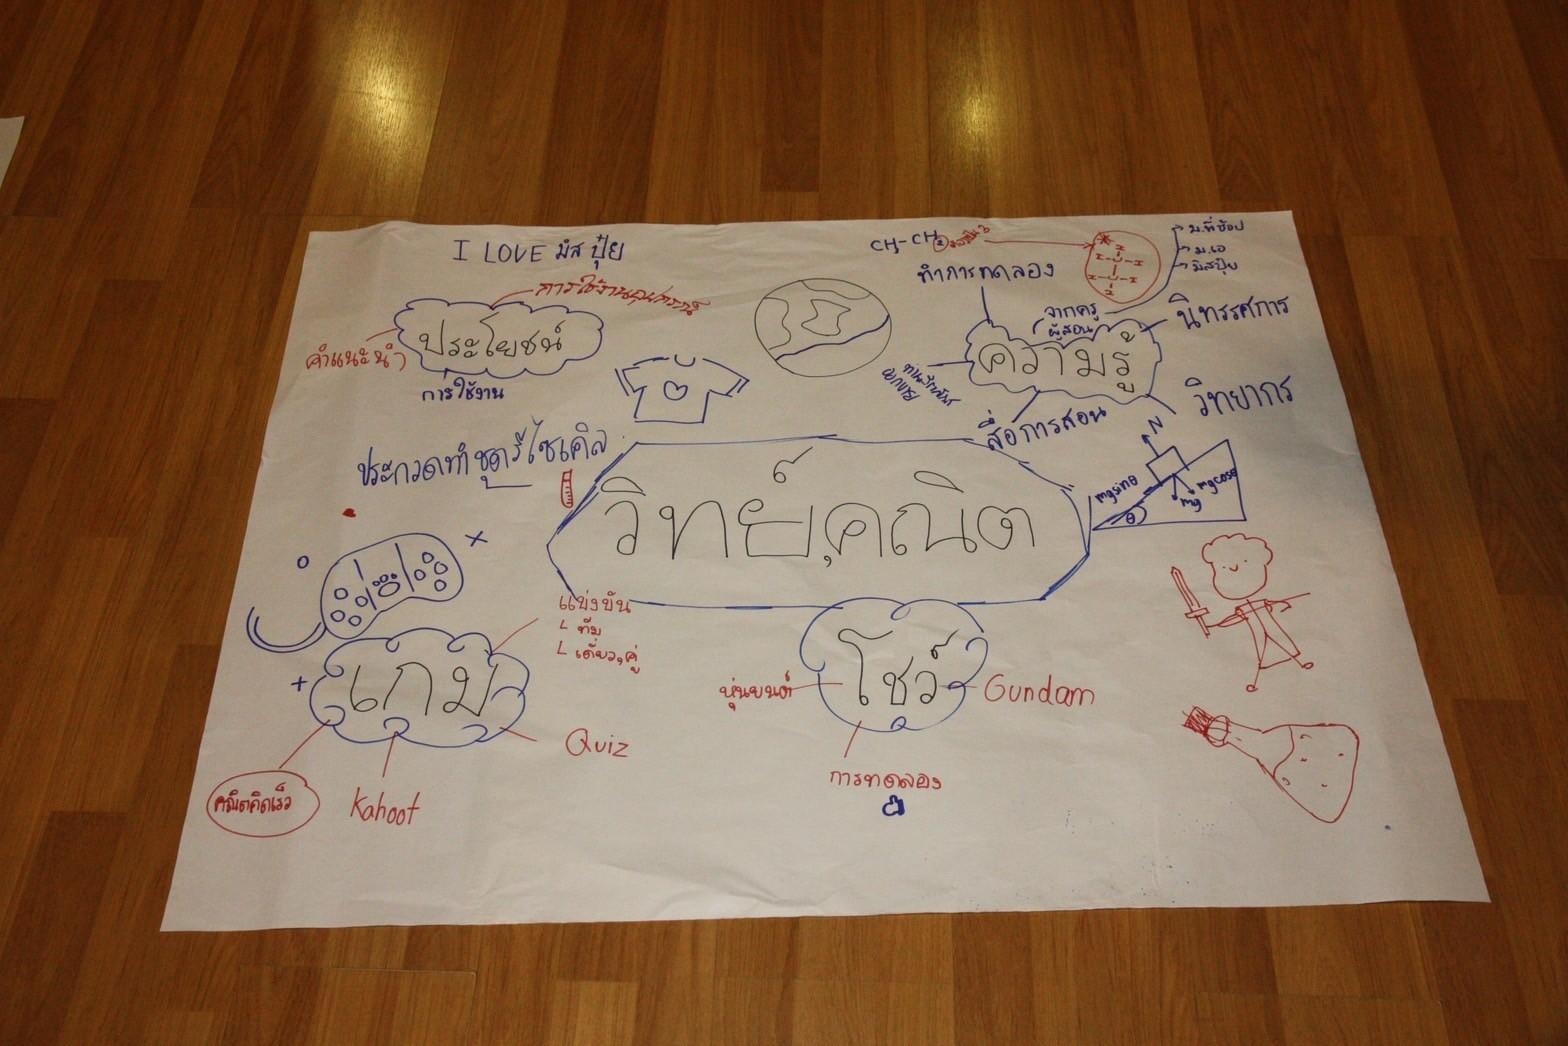 I LOVE มิส ปุ๋ย
CH-CH₃
ทำการทดลอง
ม.ที่ช็อป
ม.เอ
มิสปุ้ย
การใช้งานอุปกรณ์
ประโยชน์
คำแนะนำ
การใช้งาน
จากครู
ผู้สอน
นิทรรศการ
ความรู้
สื่อการสอน
วิทยากร
ประกวดทำชุดรีไซเคิล
วิทย์,คณิต
N
mgsinθ
mgcosθ
mg
θ
แข่งขัน
ทีม
เดี่ยว,คู่
เกม
คณิตคิดเร็ว
Kahoot
Quiz
โชว์
หุ่นยนต์
Gundam
การทดลอง